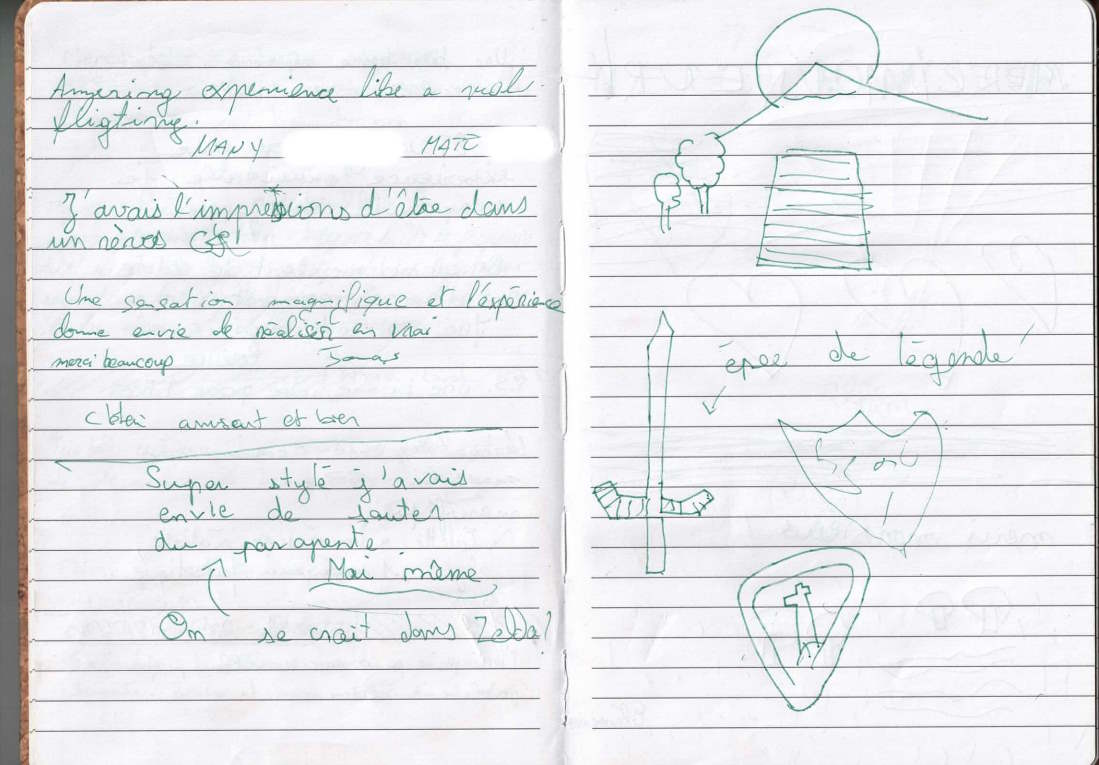 Amazing experience like a real
fligting.
MANY
J'avais l'impressions d'être dans
un rêves
Une sensation magnifique et l'expérience
donne envie de réaliser en vrai
merci beaucoup
amusant et bien
Super stylé j'avais
envie de sauter
du parapente
Moi même
On se croit dans Zelda!
épee de légende